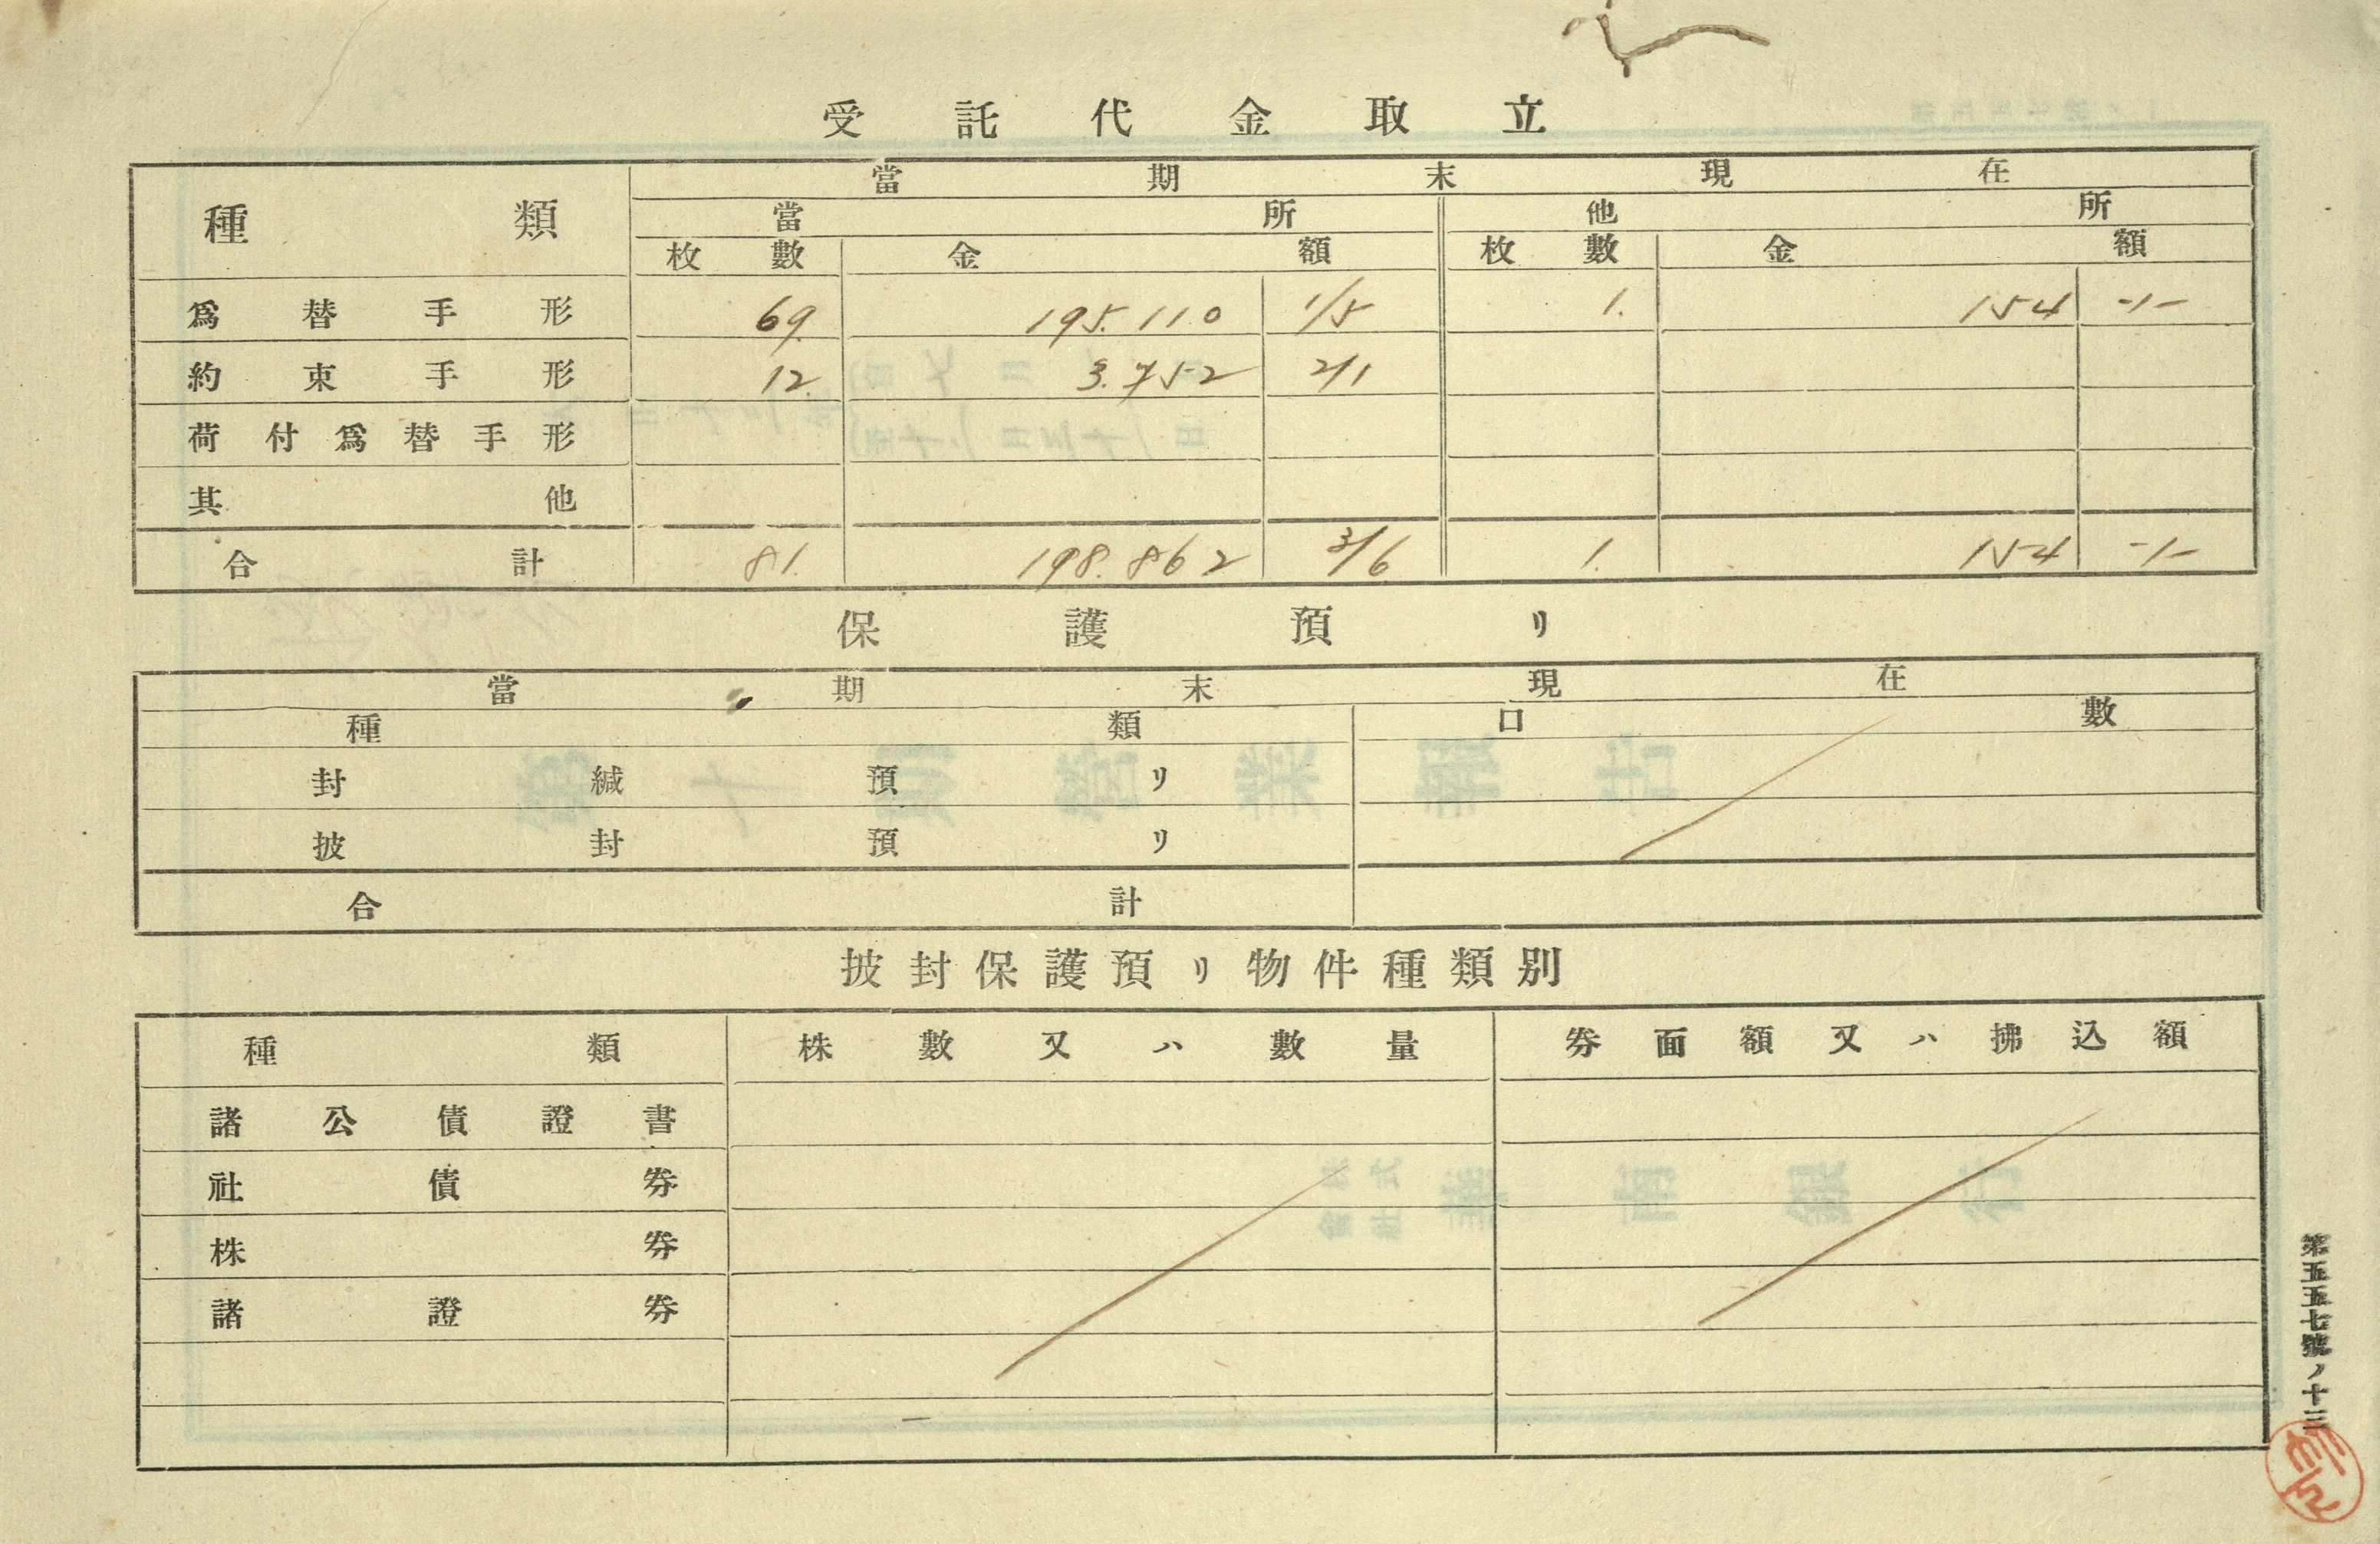 受託代金取立
種類 當期末現在
當所 他所
枚數 金額 枚數 金額
爲替手形 69. 195.110 1/5 1. 154 -/-
約束手形 12 3.752 2/1
荷付爲替手形
其他
合計 81. 198.862 3/6 1. 154 -/-
保護預リ
當期末現在
種類 口數
封緘預リ
披封預リ
合計
披封保護預リ物件種類別
種類 株數又ハ數量 券面額又ハ拂込額
諸公債證書
社債券
株券
諸證券
第五五七號ノ十三